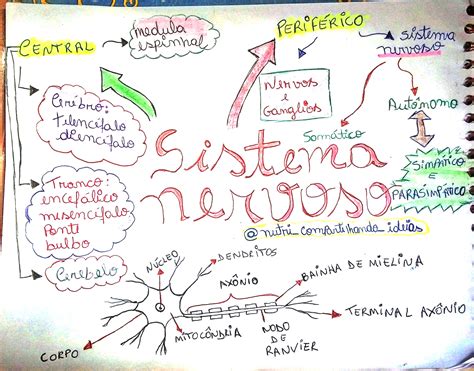 CENTRAL
medula
espinhal
PERIFÉRICO
sistema
nervoso
Cérebro:
telencéfalo
diencéfalo
Nervos
e
Ganglios
Somático
Autônomo
SIMPÁTICO
E
PARASIMPÁTICO
Sistema
nervoso
Tranco:
encefálico
mesencéfalo
Ponti
bulbo
Cerebelo
@nutri_compartilhando ideias
NÚCLEO
DENDRITOS
AXÔNIO
BAINHA DE MIELINA
MITOCÔNDRIA
NODO
DE
RANVIER
TERMINAL AXÔNIO
CORPO